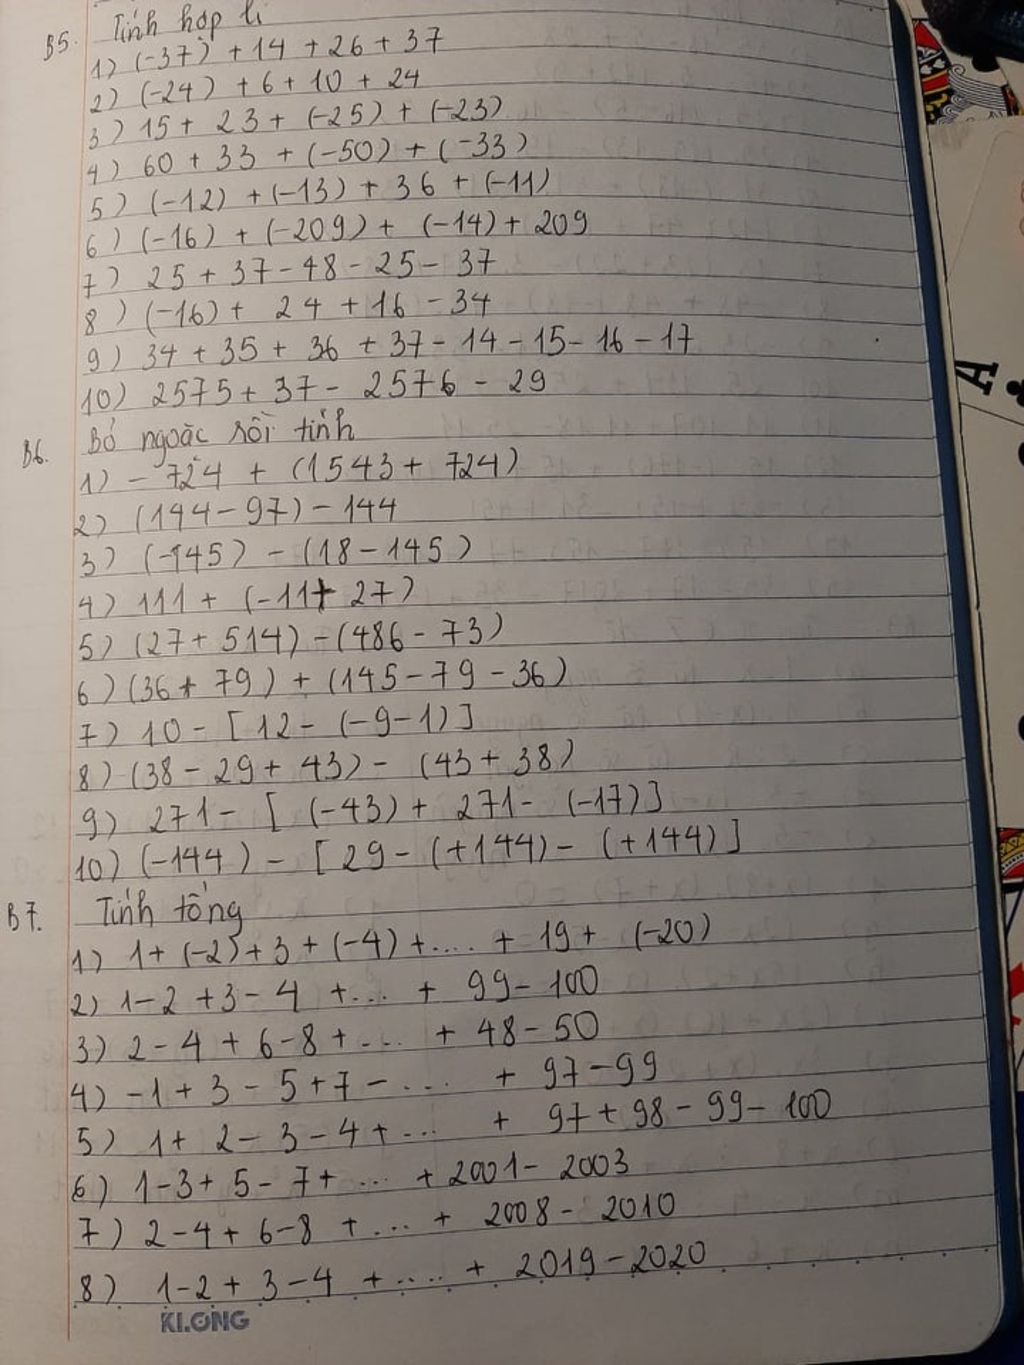 B5. Tính hợp lí
1) (-37) + 14 + 26 + 37
2) (-24) + 6 + 10 + 24
3) 15 + 23 + (-25) + (-23)
4) 60 + 33 + (-50) + (-33)
5) (-12) + (-13) + 36 + (-11)
6) (-16) + (-209) + (-14) + 209
7) 25 + 37 - 48 - 25 - 37
8) (-16) + 24 + 16 - 34
9) 34 + 35 + 36 + 37 - 14 - 15 - 16 - 17
10) 2575 + 37 - 2576 - 29
B6. Bỏ ngoặc rồi tính
1) - 724 + (1543 + 724)
2) (144 - 97) - 144
3) (-145) - (18 - 145)
4) 111 + (-11 + 27)
5) (27 + 514) - (486 - 73)
6) (36 + 79) + (145 - 79 - 36)
7) 10 - [12 - (-9 - 1)]
8) (38 - 29 + 43) - (43 + 38)
9) 271 - [(-43) + 271 - (-17)]
10) (-144) - [29 - (+144) - (+144)]
B7. Tính tổng
1) 1 + (-2) + 3 + (-4) + .... + 19 + (-20)
2) 1 - 2 + 3 - 4 + ... + 99 - 100
3) 2 - 4 + 6 - 8 + ... + 48 - 50
4) -1 + 3 - 5 + 7 - ... + 97 - 99
5) 1 + 2 - 3 - 4 + ... + 97 + 98 - 99 - 100
6) 1 - 3 + 5 - 7 + ... + 2001 - 2003
7) 2 - 4 + 6 - 8 + ... + 2008 - 2010
8) 1 - 2 + 3 - 4 + .... + 2019 - 2020
KLONG
A